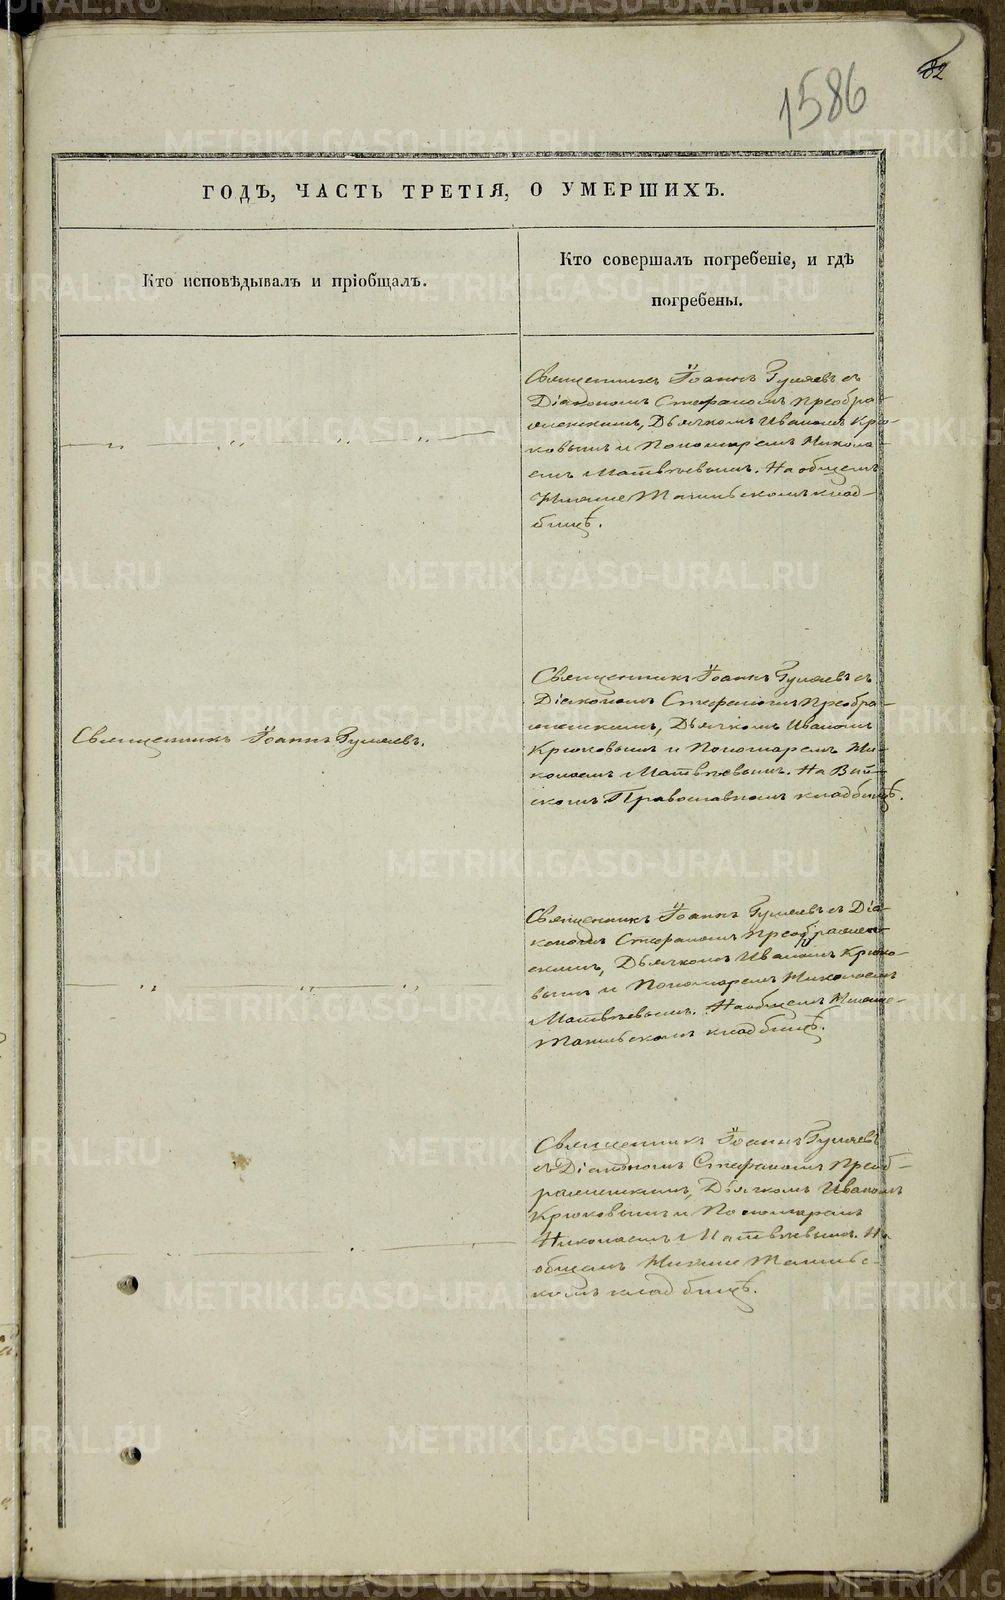 82
1586
ГОДЪ, ЧАСТЬ ТРЕТІЯ, О УМЕРШИХЪ.
Кто исповѣдывалъ и пріобщалъ.
Кто совершалъ погребеніе, и гдѣ
погребены.
Священникъ Іоаннъ Гуляевъ съ
Діакономъ Стефаномъ Преобра-
женскимъ, Дьячкомъ Иваномъ Крю-
ковымъ и Пономаремъ Никола-
емъ Матвѣевымъ. На общемъ
Нижне Тагильскомъ клад-
бищѣ.
Священникъ Іоаннъ Гуляевъ съ
Діакономъ Стефаномъ Преобра-
женскимъ, Дьячкомъ Иваномъ
Крюковымъ и Пономаремъ Ни-
колаемъ Матвѣевымъ. На Вый-
скомъ Православномъ кладбищѣ.
Священникъ Іоаннъ Гуляевъ.
Священникъ Іоаннъ Гуляевъ съ Діа-
кономъ Стефаномъ Преображен-
скимъ, Дьячкомъ Иваномъ Крюко-
вымъ и Пономаремъ Николаемъ
Матвѣевымъ. На общемъ Нижне-
Тагильскомъ кладбищѣ.
Священникъ Іоаннъ Гуляевъ
съ Діакономъ Стефаномъ Преоб-
раженскимъ, Дьячкомъ Иваномъ
Крюковымъ и Пономаремъ
Николаемъ Матвѣевымъ. На
общемъ Нижне Тагильс-
комъ кладбищѣ.
METRIKI.GASO-URAL.RU